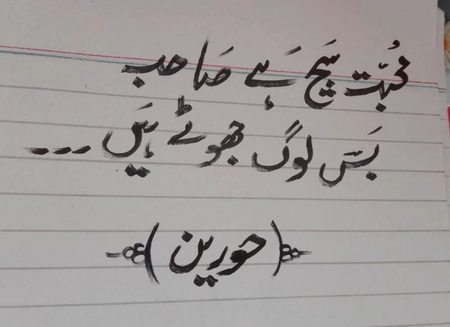 محبّت سَچ ہَے صَاحب
بَس لوگ جھوٹے ہیَں ---
﴿حورین﴾